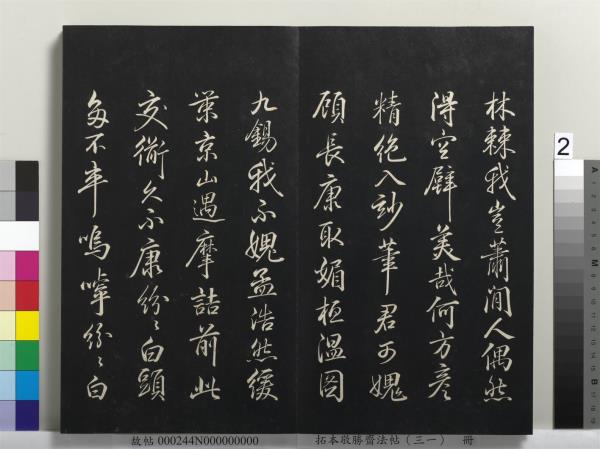 林棘我豈蕭閒人偶然
得空壁美哉何方彥
精絶入妙筆君可媿
顧長康取媚桓溫圖
九錫我不媿孟浩然緩
策京山遇摩詰前此
交衢久不康紛〻白頭
每不率嗚嘷紛〻白
故帖 000244N000000000
拓本敬勝齋法帖（三一） 冊
2